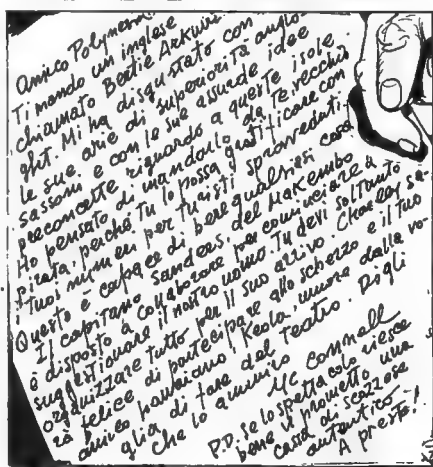 Amico Polynesri
Ti mando un inglese
chiamato Bertie Arkwri-
ght. Mi ha disgustato con
le sue arie di superiorità anglo-
sassoni e con le sue assurde idee
preconcette riguardo a queste isole.
Ho pensato di mandarlo da te, vecchio
pirata, perché tu lo possa gratificare con
i tuoi numeri per turisti sprovveduti.
Questo è capace di bere qualsiasi cosa.
Il capitano Sanders, del Makembo
è disposto a collaborare per cominciare a
suggestionare il nostro uomo. Tu devi soltanto
organizzare tutto per il suo arrivo. Charley sa-
rà felice di partecipare allo scherzo e il tuo
amico hawaiano, Keola, muore dalla vo-
glia di fare del teatro. Digli
che lo ammiro
Mc Connell
P.D. Se lo spettacolo riesce
bene ti prometto una
cassa di scozzese
autentico
A presto!